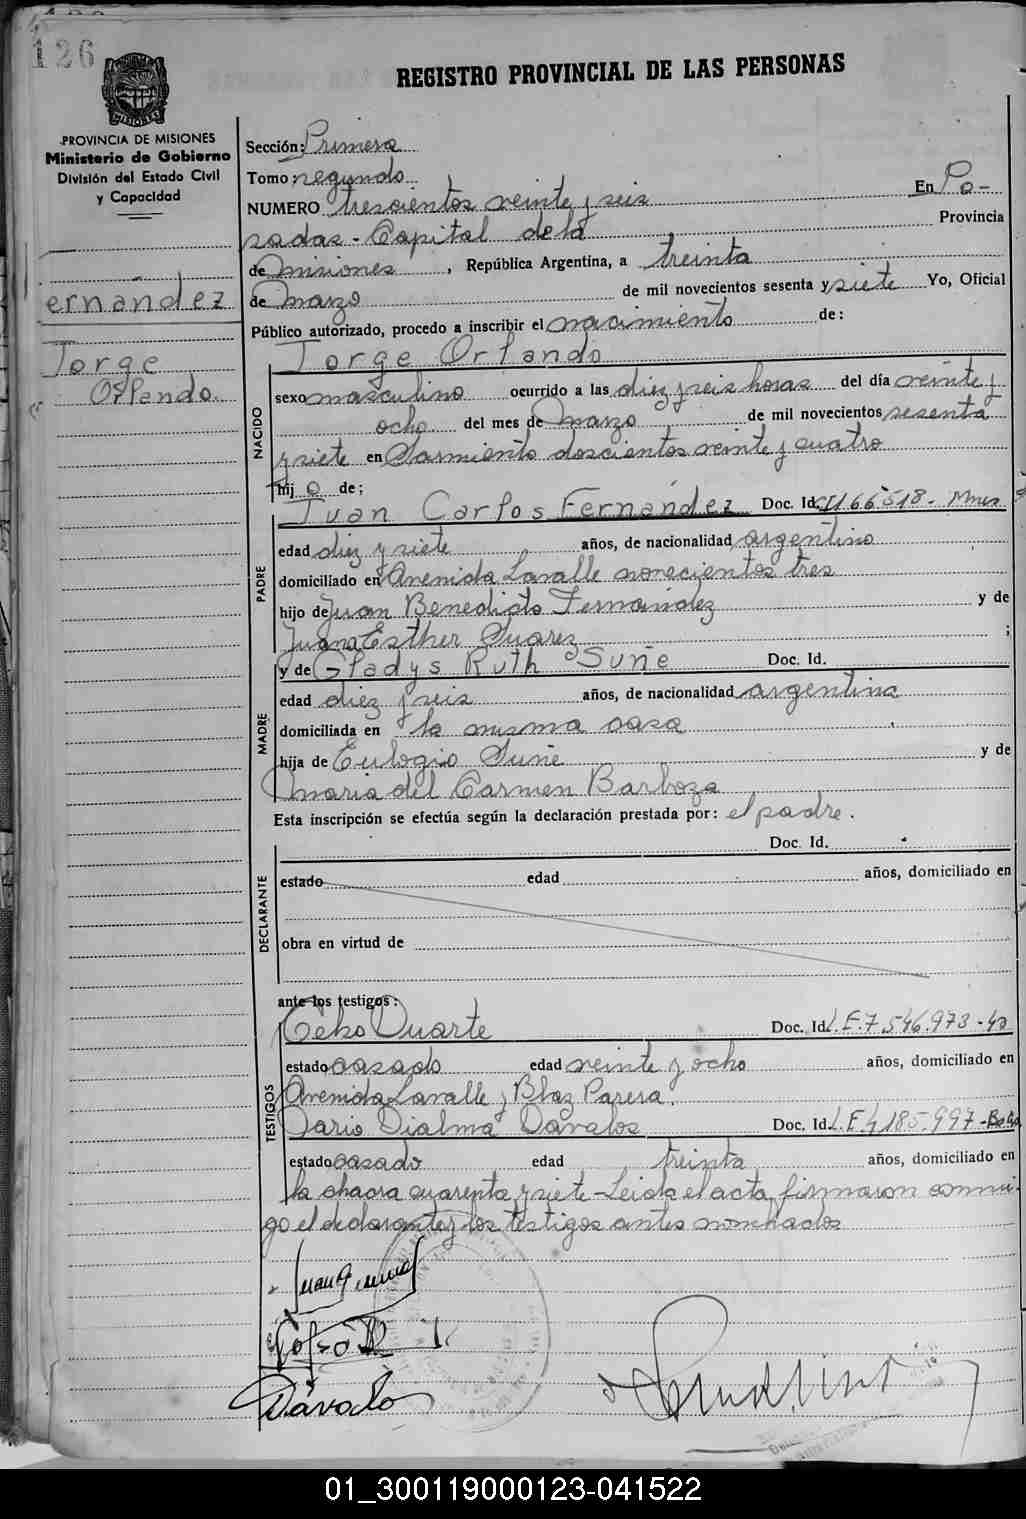 126
REGISTRO PROVINCIAL DE LAS PERSONAS
PROVINCIA DE MISIONES
Ministerio de Gobierno
División del Estado Civil
y Capacidad
ernández
Jorge
Orlando
Sección: Primera
Tomo segundo
NUMERO trescientos veinte y seis En Po-
sadas - Capital de la Provincia
de Misiones, República Argentina, a treinta
de Marzo de mil novecientos sesenta y siete Yo, Oficial
Público autorizado, procedo a inscribir el nacimiento de:
Jorge Orlando
NACIDO
sexo masculino ocurrido a las diez y seis horas del día veinte y
ocho del mes de Marzo de mil novecientos sesenta
y siete en Sarmiento doscientos veinte y cuatro
hijo de;
PADRE
Juan Carlos Fernández Doc. Id. CI 166518 - Mnes
edad diez y siete años, de nacionalidad argentino
domiciliado en Avenida Lavalle novecientos tres
hijo de Juan Benedicto Fernández y de
Juana Esther Suarez ;
MADRE
y de Gladys Ruth Suñe Doc. Id.
edad diez y seis años, de nacionalidad argentina
domiciliada en la misma casa
hija de Eulogio Suñe y de
María del Carmen Barboza
Esta inscripción se efectúa según la declaración prestada por: el padre.
DECLARANTE
Doc. Id.
estado edad años, domiciliado en
obra en virtud de
ante los testigos:
TESTIGOS
Celso Duarte Doc. Id. L.E. 7.546.973 -
estado casado edad veinte y ocho años, domiciliado en
Avenida Lavalle y Blaz Parera.
Dario Dialma Davalos Doc. Id. L.E. 4.185.997 -
estado casado edad treinta años, domiciliado en
la chacra cuarenta y siete - Leida el acta, firmaron conmi-
go el declarante y los testigos antes nombrados
Dávalo
01_300119000123-041522